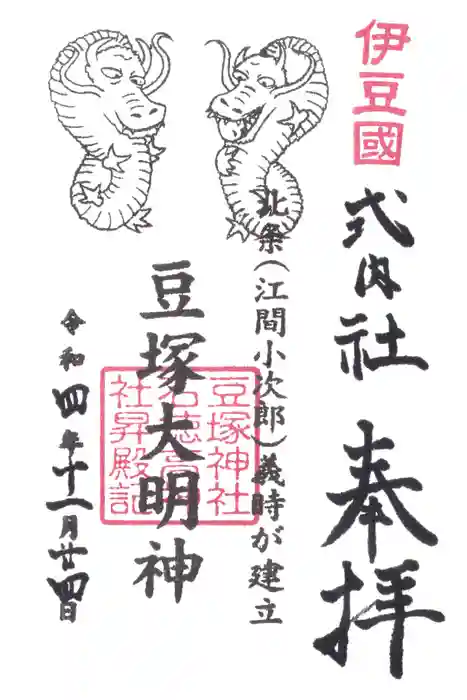 伊豆國
式内社 奉拝
北條(江間小次郎)義時が建立
豆塚大明神
豆塚神社
社昇殿記
令和四年十一月廿四日